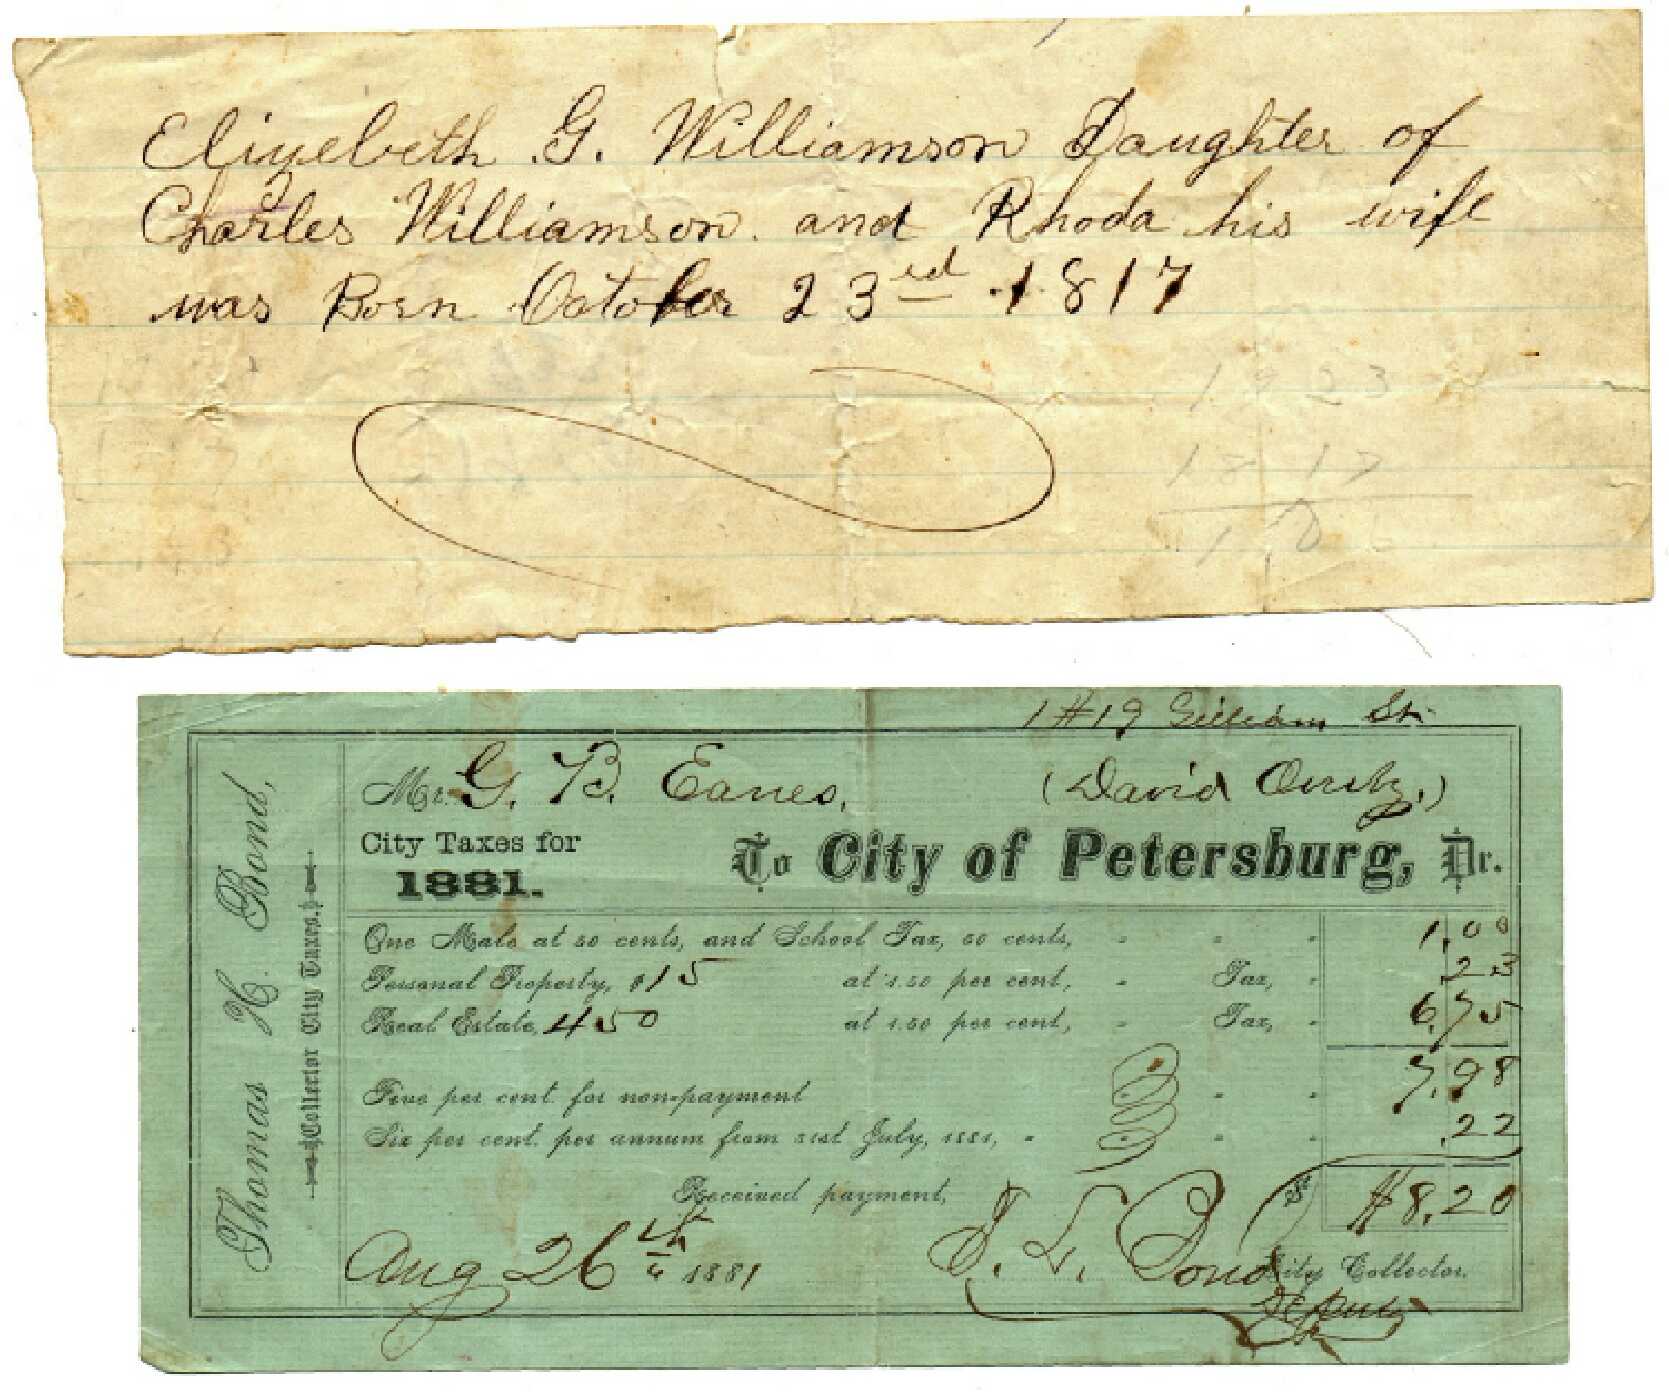 Elizebeth G. Williamson Daughter of
Charles Williamson and Rhoda his wife
was Born October 23rd 1817
1923
1817
106
1#19 Gilliam St.
Mr. G. B. Eanes. (David
City Taxes for
1881.
To City of Petersburg, Dr.
Thomas H. Bond,
Collector City Taxes.
One Male at 50 cents, and School Tax, 50 cents, 1.00
Personal Property, $15 at 1.50 per cent, Tax, .23
Real Estate, 450 at 1.50 per cent, Tax, 6.75
7.98
Five per cent. for non-payment
Six per cent. per annum from 31st July, 1881, .22
Received payment, $8.20
Aug 26th 1881
Bond City Collector.
Deputy